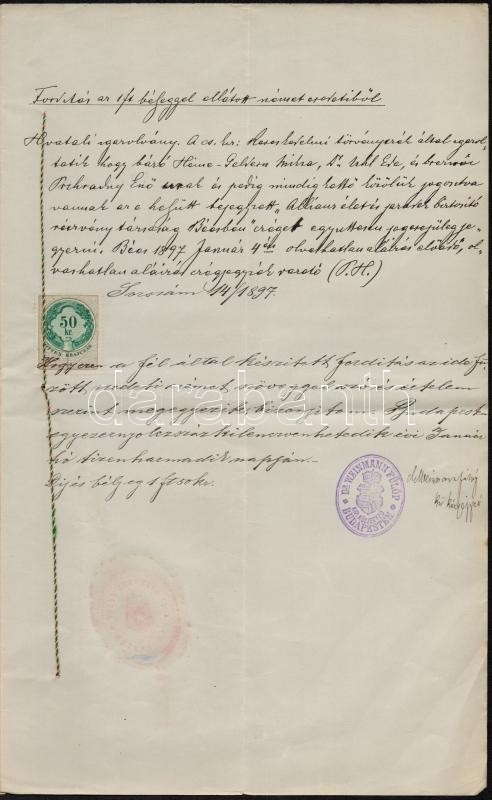 Fordítás az 1 ft bélyeggel ellátott német eredetiből
Hivatali igazolvány. A cs. kir. Kereskedelmi törvényszék által igazol-
tatik hogy báró Heine-Geldern Miksa, Dr. Uhl Ede, és
Ernő urak és pedig mindig kettő közülük jogosítva
vannak az e helyütt bejegyzett „Allianz élet és járadék biztosító
részvény társaság Bécsben" czéget együttesen jogérvényesen je-
gyezni. Bécs 1897 Január 4én olvashatlan aláirás elnök, ol-
vashatlan aláirás czégjegyzék vezető (P.H.)
14/1897.
50
kr.
Hogy ezen a fél által készitett forditás az ide fü-
zött eredeti német szöveggel szó és értelem
szerint megegyezik, bizonyitom. Budapest
egyezernyolczszáz kilenczvenhetedik évi Január
hó tizenharmadik napján.-
Dij és bélyeg 1 ft 50 kr.
Dr WEINMANN FÜLÖP
KIR. KÖZJEGYZŐ
BUDAPESTEN
Dr Weinmann Fülöp
kir. közjegyző
darabanth